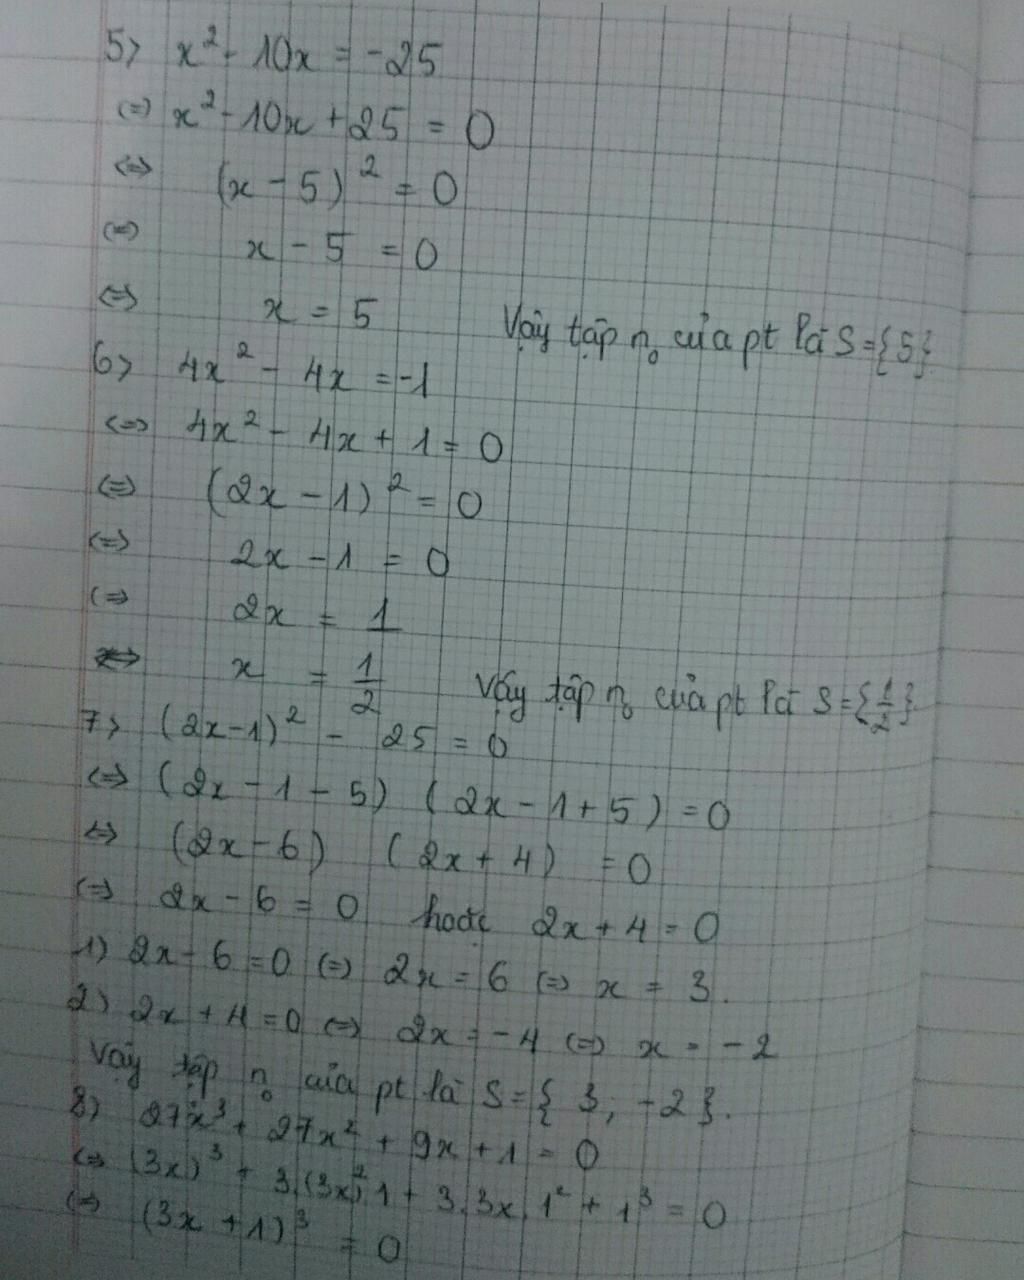 5) x² - 10x = -25
(=) x² - 10x + 25 = 0
<=> (x - 5)² = 0
(=) x - 5 = 0
<=> x = 5 Vậy tập n₀ của pt là S = {5}
6) 4x² - 4x = -1
<=> 4x² - 4x + 1 = 0
<=> (2x - 1)² = 0
<=> 2x - 1 = 0
(=> 2x = 1
<=> x = 1/2 Vậy tập n₀ của pt là S = {1/2}
7) (2x-1)² - 25 = 0
<=> (2x - 1 - 5) (2x - 1 + 5) = 0
<=> (2x - 6) (2x + 4) = 0
<=> 2x - 6 = 0 hoặc 2x + 4 = 0
1) 2x - 6 = 0 (=) 2x = 6 <=> x = 3.
2) 2x + 4 = 0 <=> 2x = -4 <=> x = -2
Vậy tập n₀ của pt là S = { 3 ; -2 }.
8) 27x³ + 27x² + 9x + 1 = 0
<=> (3x)³ + 3.(3x)².1 + 3.3x.1² + 1³ = 0
<=> (3x + 1)³ = 0